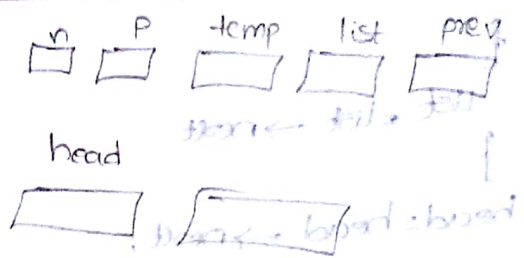 n p temp list prev
head